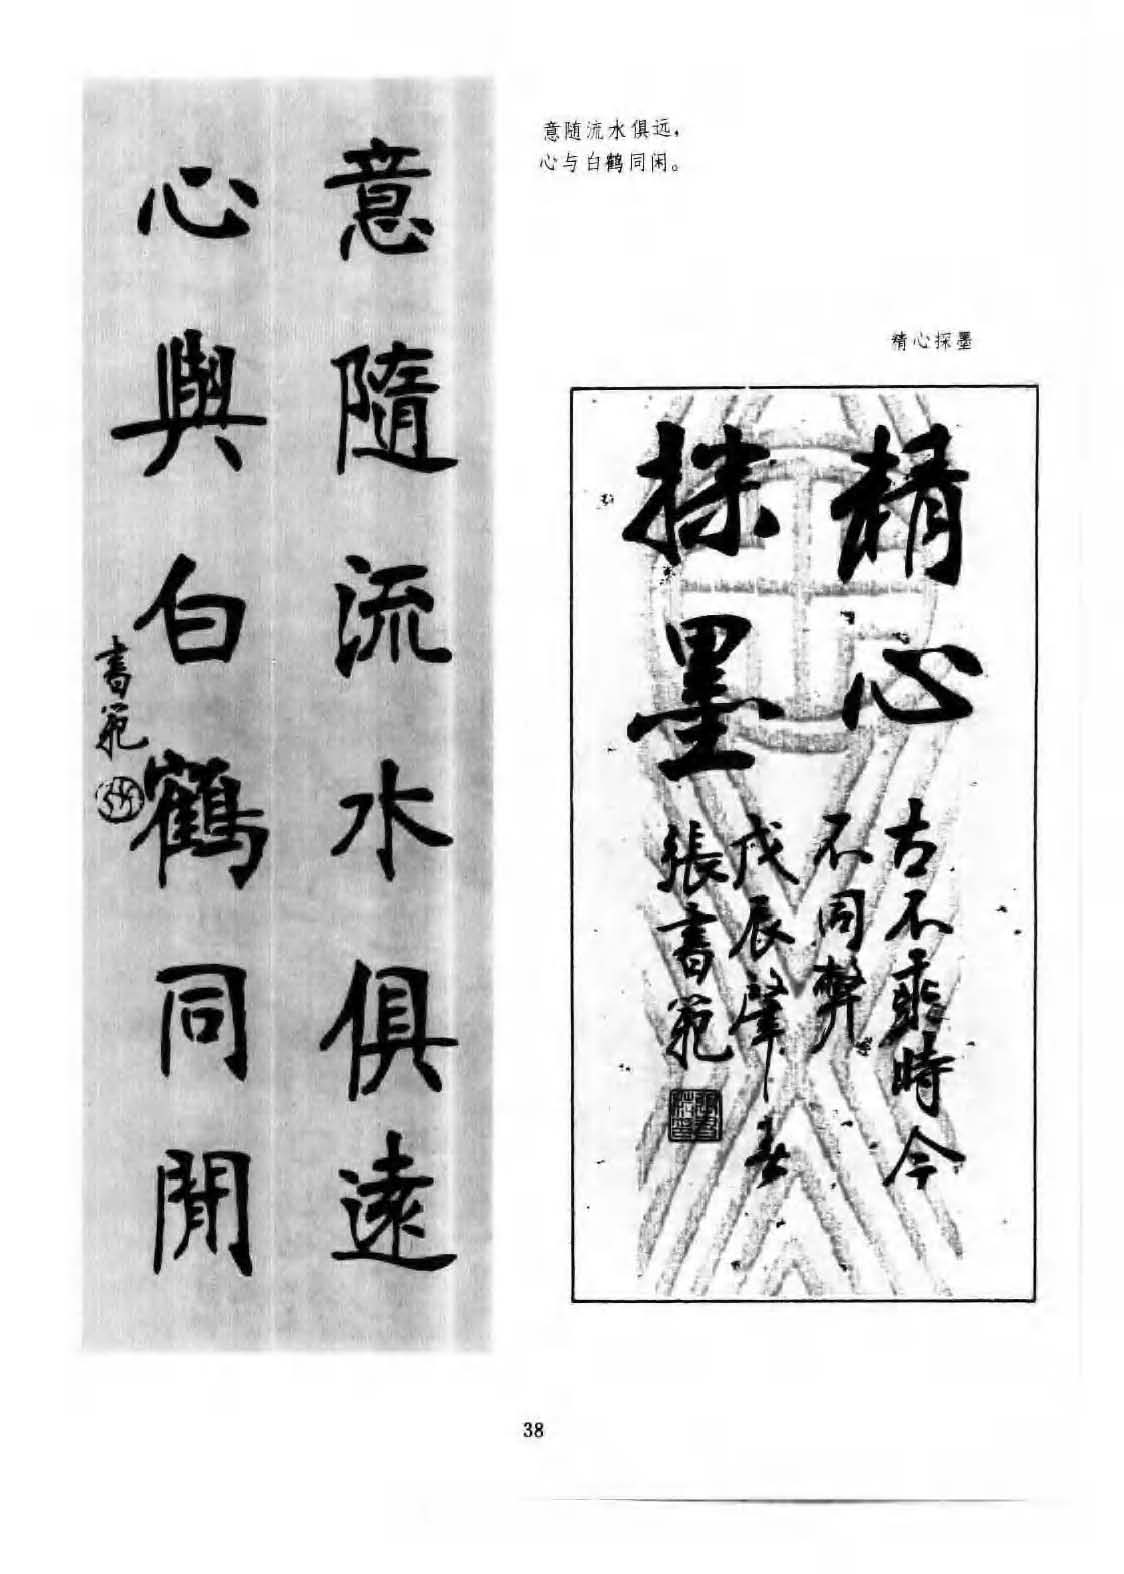 意随流水俱远，
心与白鹤同闲。
意隨流水俱遠
心與白鶴同閒
書範
精心探墨
精心
探墨
古不乖時今
不同弊
戊辰肇春
張書範
38